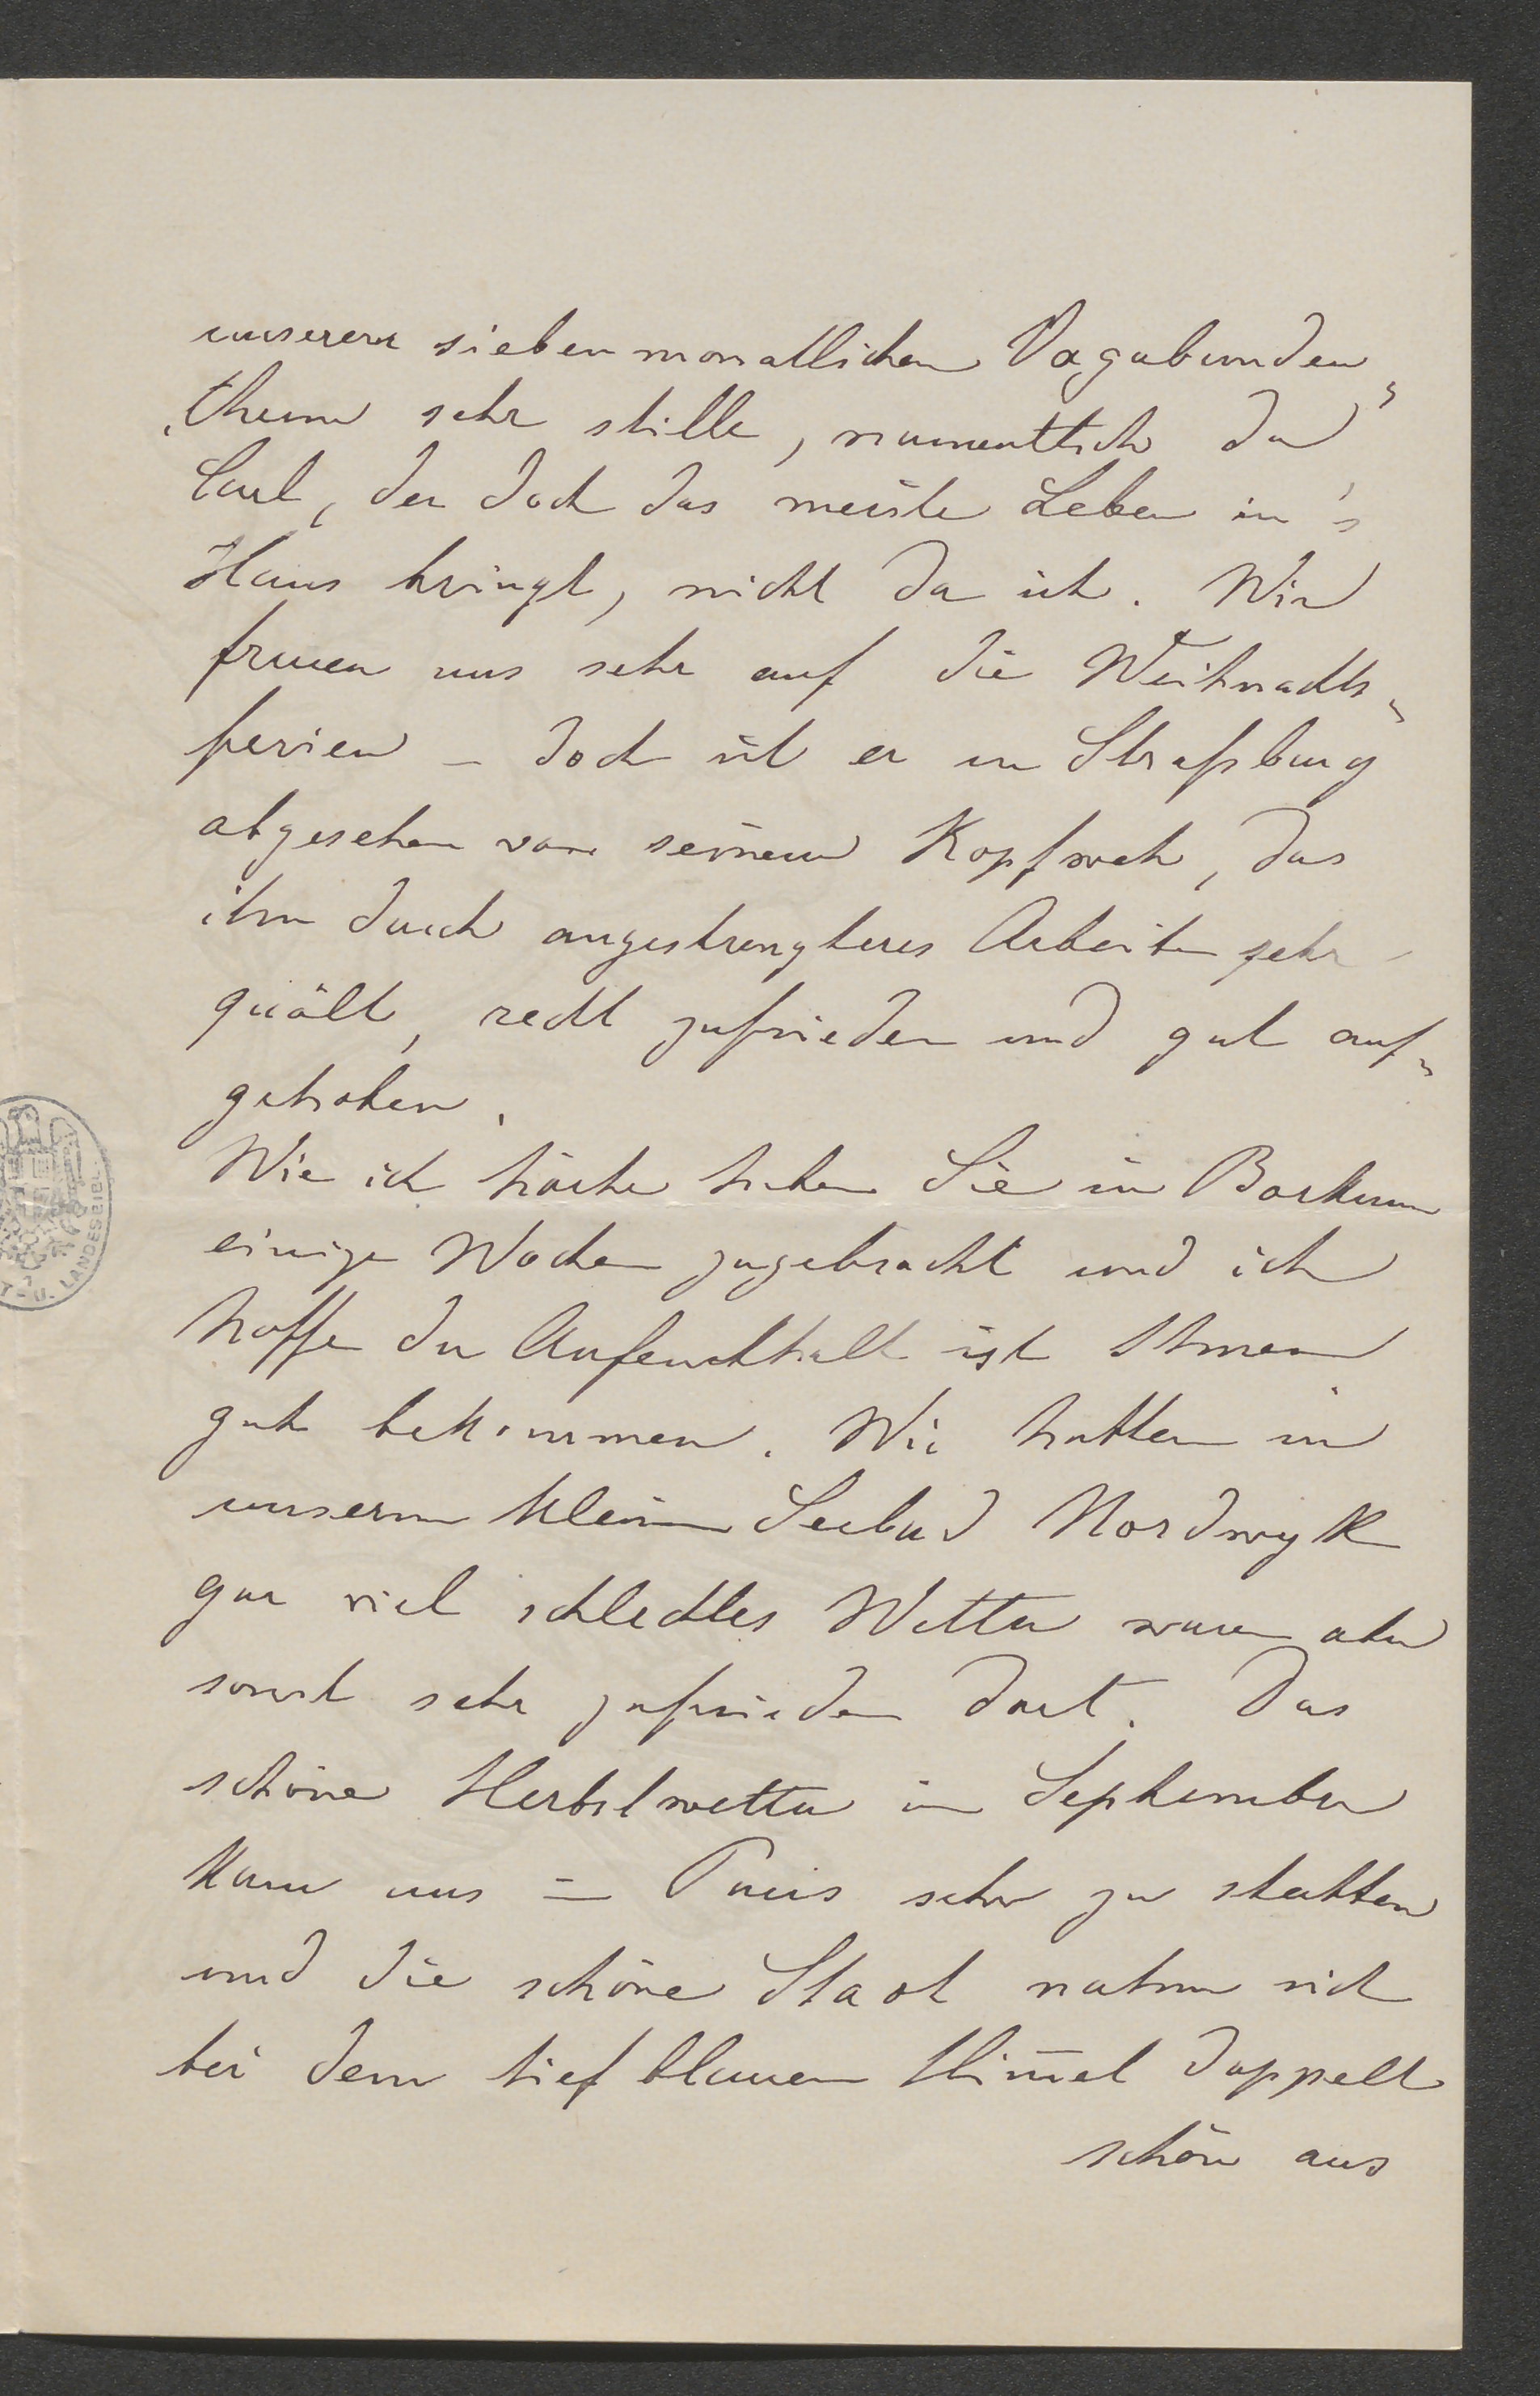 unserem siebenmonatlichen Vagabunden„
„thum sehr stille, namentlich da
Carl, der doch das meiste Leben in's
Haus bringt, nicht da ist. Wir
freuen uns sehr auf die Weihnachts„
ferien – doch ist er in Straßburg
abgesehen von seinem Kopfweh, das
ihn durch angestrengteres Arbeiten sehr
quält, recht zufrieden und gut auf„
gehoben.
Wie ich hörte haben Sie in Borkum
einige Wochen zugebracht und ich
hoffe der Aufenthalt ist Ihnen
gut bekommen. Wir hatten in
unserm kleinen Seebad Nordwyk
gar viel schlechtes Wetter waren aber
sonst sehr zufrieden dort. Das
schöne Herbstwetter im September
kam uns in Paris sehr zu statten
und die schöne Stadt nahm sich
bei dem tief blauen Him̄el doppelt
schön aus
T- U. LANDESBIBL